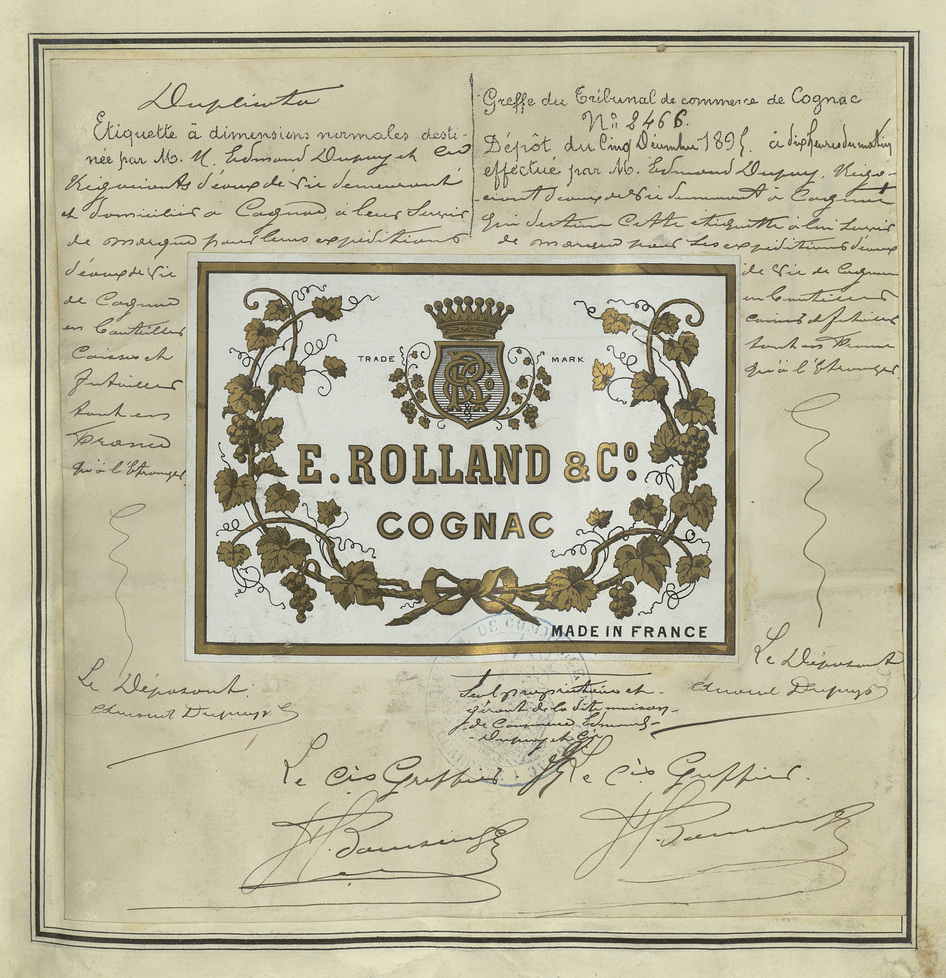 Duplicata
Etiquette à dimensions normales desti-
née par M. M. Edmond Dupuy et Cie
Négociants d'eaux de vie demeurant
et domiciliés à Cognac, à leur servir
de marque pour leurs expéditions
d'eaux de vie
de Cognac
en bouteilles
caisses et
futailles
tant en
France
qu'à l'Etranger.
Le Déposant.
Edmond Dupuy
Greffe du Tribunal de commerce de Cognac
No. 2466.
Dépôt du Cinq Décembre 1895. à dix heures du matin
effectué par M. Edmond Dupuy, Négo-
ciant d'eaux de vie demeurant à Cognac
qui destine cette etiquette à lui servir
de marque pour ses expéditions d'eaux
de vie de Cognac
en bouteilles
caisses & futailles
tant en France
qu'à l'Etranger.
Le Déposant
Edmond Dupuy
TRADE MARK
E. ROLLAND & Co.
COGNAC
MADE IN FRANCE
Seul propriétaire et
gérant de la dite maison
de Commerce Edmond
Dupuy et Cie
Le Cis Greffier
Le Cis Greffier.